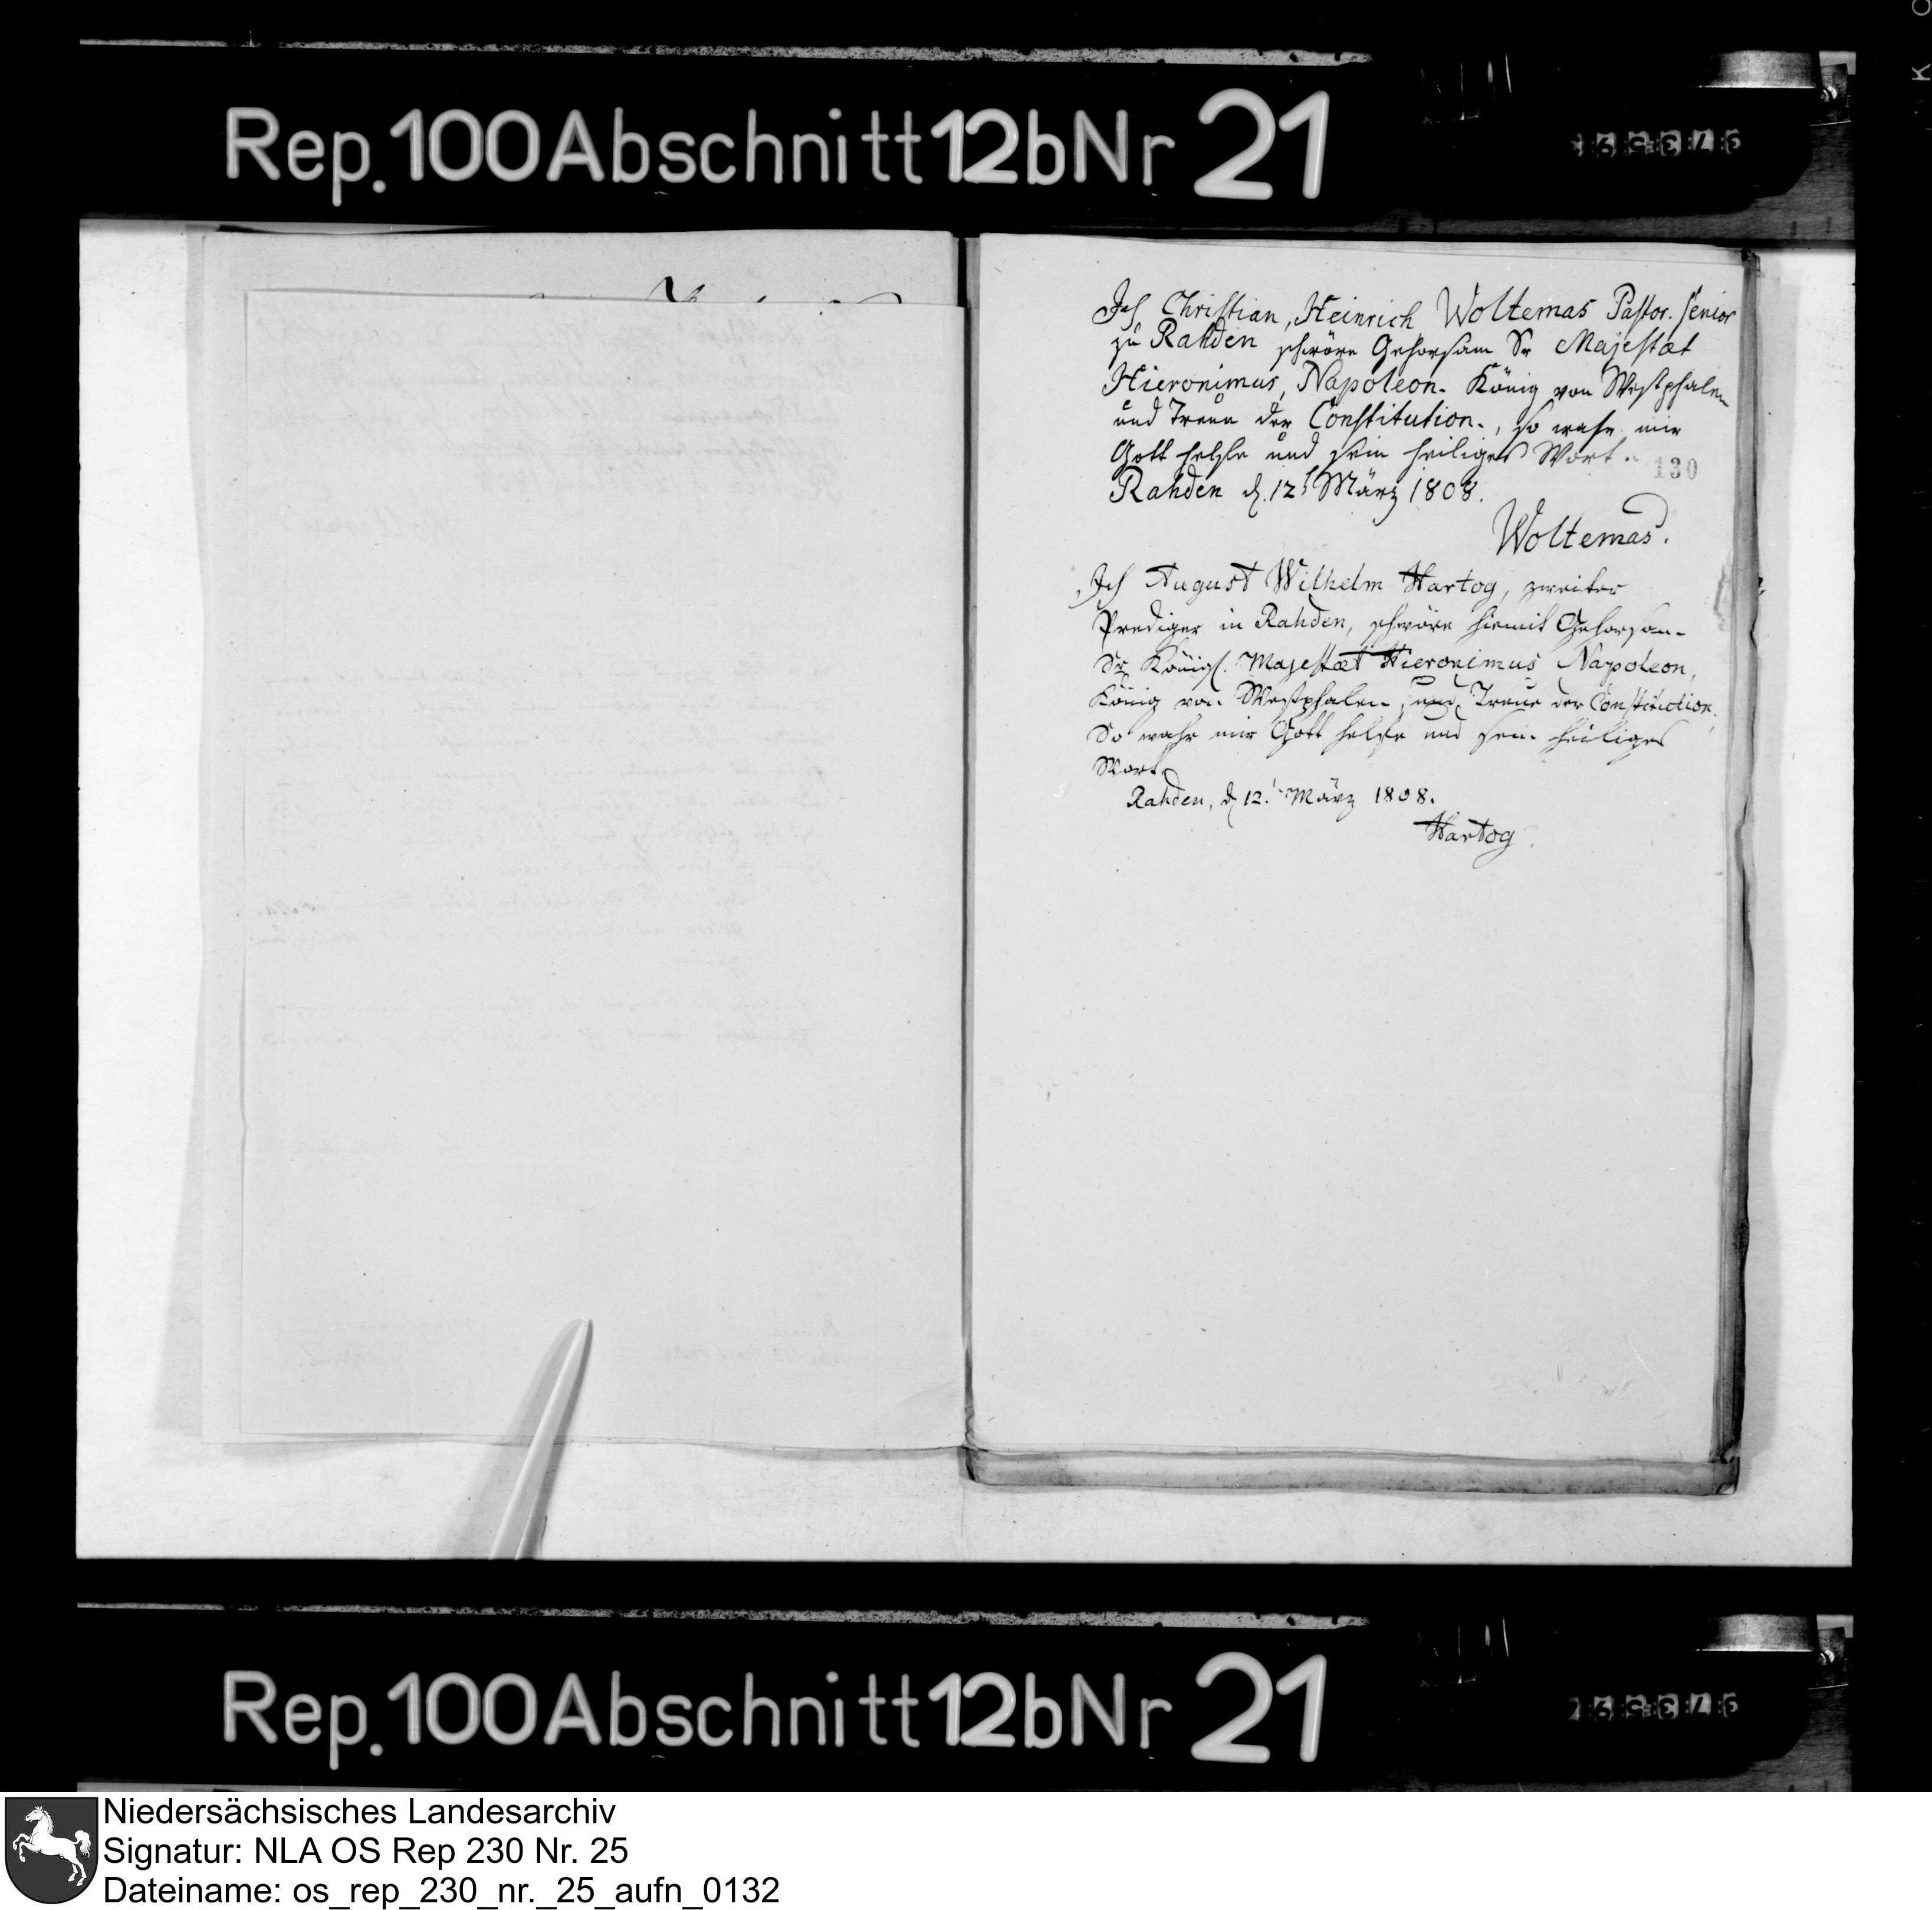 Rep. 100 Abschnitt 12b Nr 21
Ich Christian, Heinrich Woltemas Pastor. senior
zu Rahden schwöre Gehorsam Sr Majestæt
Hieronimus, Napoleon. König von Westphalen
und Treue der Constitution., so wahr mir
Gott helfe und sein heiliges Wort.
130
Rahden d. 12t März 1808.
Woltemas.
Ich August Wilhelm Hartog, zweiter
Prediger in Rahden, schwöre hiemit Gehorsam
Sr Königl. Majestæt Hieronimus Napoleon,
König von Westphalen, und Treue der Constitution,
So wahr mir Gott helfe und sein heiliges
Wort.
Rahden, d 12t März 1808.
Hartog.
Rep. 100 Abschnitt 12b Nr 21
Niedersächsisches Landesarchiv
Signatur: NLA OS Rep 230 Nr. 25
Dateiname: os_rep_230_nr._25_aufn_0132